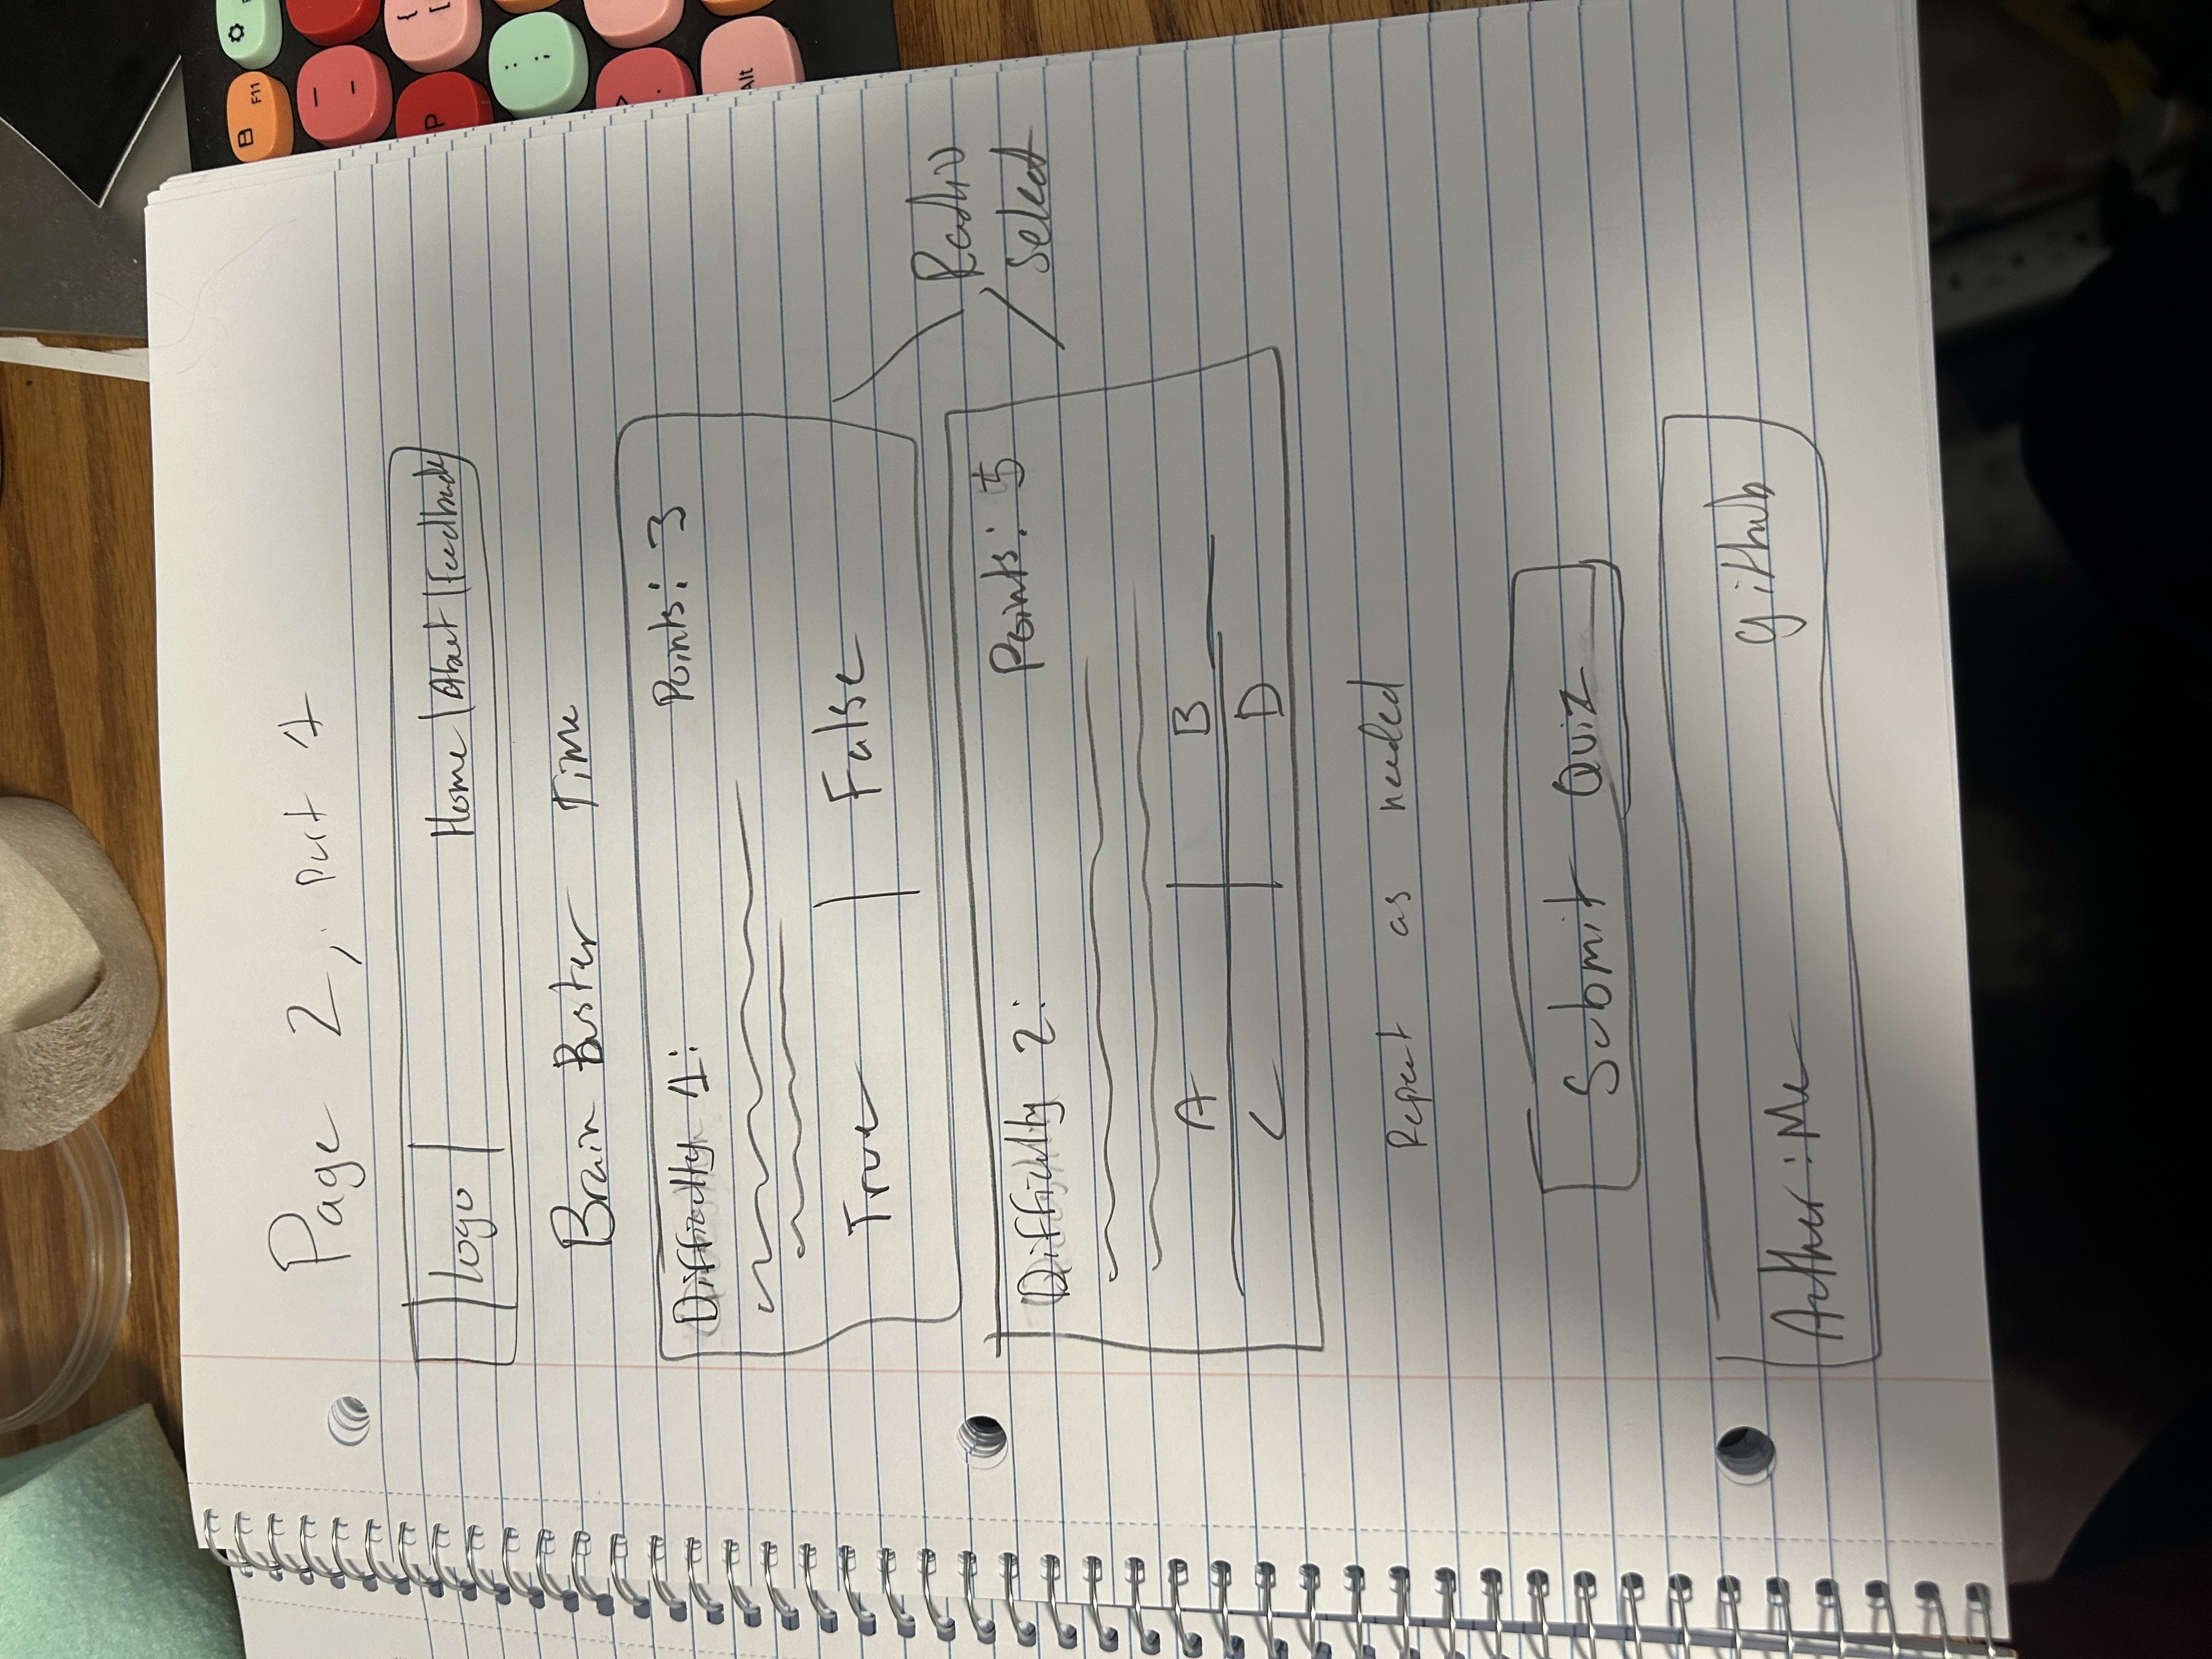 Page 2, Part 1
Logo Home | About | Feedback
Brain Buster Time
Difficulty 1: Points: 3
True | False
Difficulty 2: Points: 5
A B
C D
Radio
Select
Repeat as needed
Submit Quiz
Author: Me github
F11
{
[
P
:
;
>
.
Alt